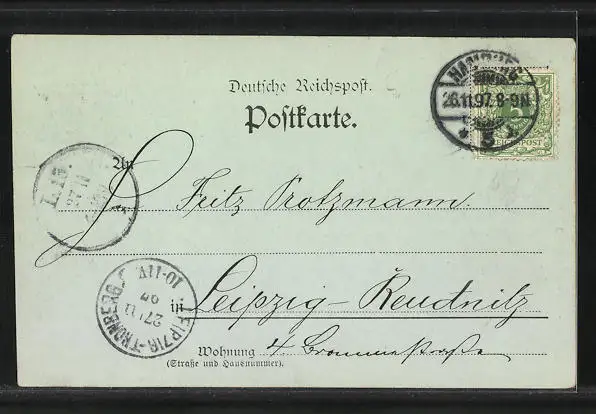 Deutsche Reichspost.
Postkarte.
HAMBURG
26.11.97. 8-9N
5
REICHSPOST
An
Fritz Protzmann
27 11
LEIPZIG-THONBERG
27/11 97
10-11V
in Leipzig-Reudnitz
Wohnung 4
(Straße und Hausnummer).